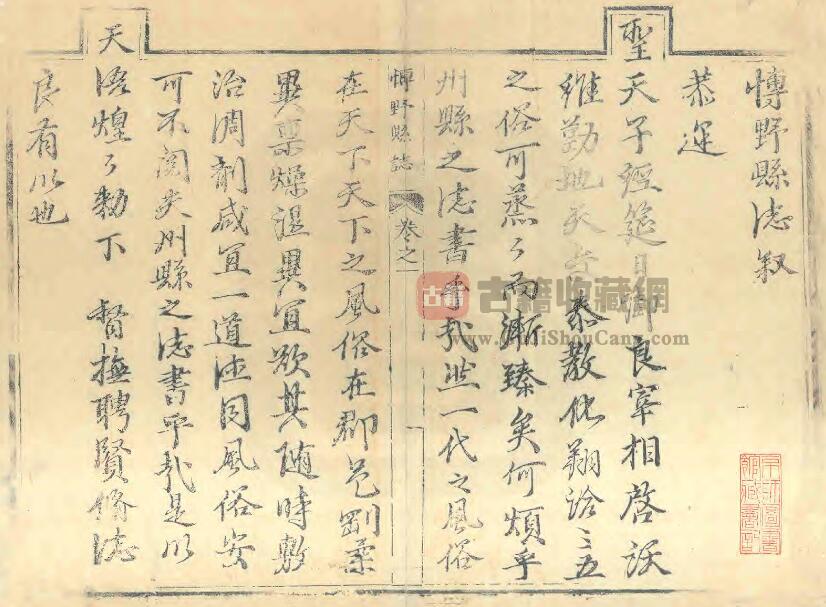 博野縣誌叙
恭遇
聖天子經筵日御良宰相啓沃
維勤地天交泰教化翔洽三五
之俗可蒸々而漸臻矣何煩乎
州縣之志書乎哉然一代之風俗
博野縣誌 卷之一
在天下天下之風俗在郡邑剛柔
異稟燥濕異宜欲其随時敷
治凋劑咸宜一道德同風俗安
可不関夫州縣之志書乎哉是以
天語煌々勅下 督撫聘賢脩志
良有以也
古籍收藏网
www.GuJiShouCang.com
京師圖書
館藏書記